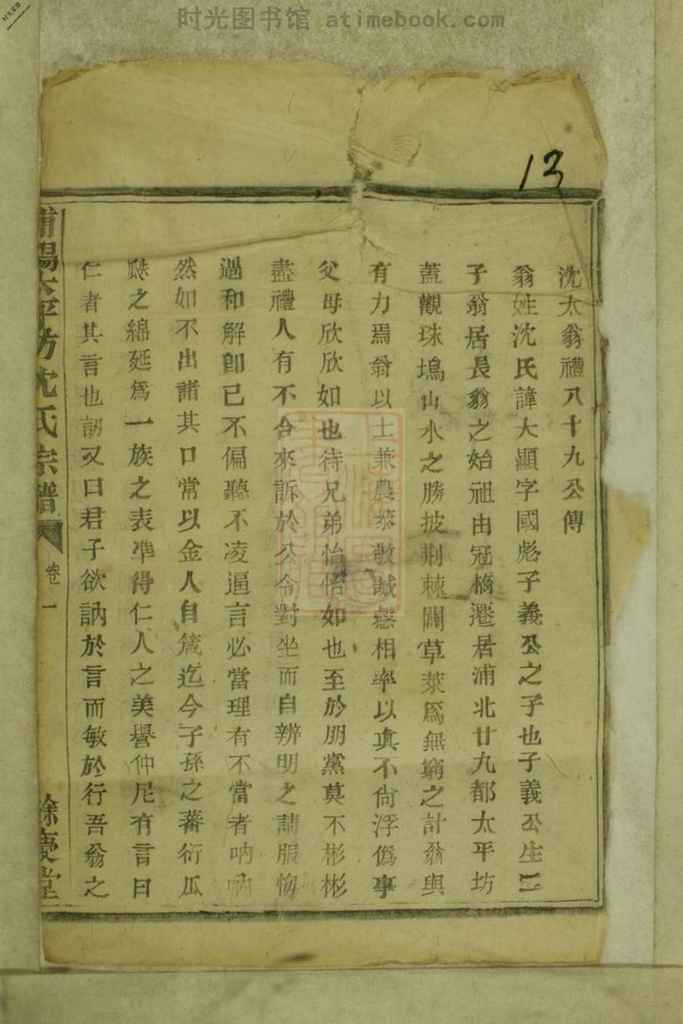 时光图书馆 atimebook.com
13
沈太翁禮八十九公傳
翁姓沈氏諱大顯字國彪子義公之子也子義公生二
子翁居長翁之始祖由冠橋遷居浦北廿九都太平坊
蓋觀珠塢山水之勝披荆棘闢草萊爲無窮之計翁與
有力焉翁以士兼農 教 相率以真不尙浮僞事
父母欣欣如也待兄弟怡怡如也至於朋黨莫不彬彬
盡禮人有不合來訴於公令對坐而自辨明之請服悔
過和解卽已不偏聽不凌逼言必當理有不當者吶吶
然如不出諸其口常以金人自箴迄今子孫之蕃衍瓜
瓞之綿延爲一族之表準得仁人之美譽仲尼有言曰
仁者其言也訒又曰君子欲訥於言而敏於行吾翁之
浦陽太平坊沈氏宗譜 卷一 餘慶堂